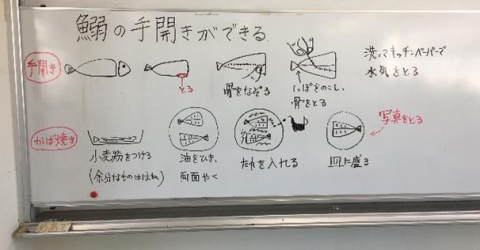 鰯の手開きができる
手開き
とる
骨をなぞる
しっぽをのこし、
骨をとる
洗ってキッチンペーパーで
水気をとる
かば焼き
小麦粉をつける
(余分なものははたく)
油をひき、
両面やく
たれを入れる
皿に盛る
写真をとる
めあて